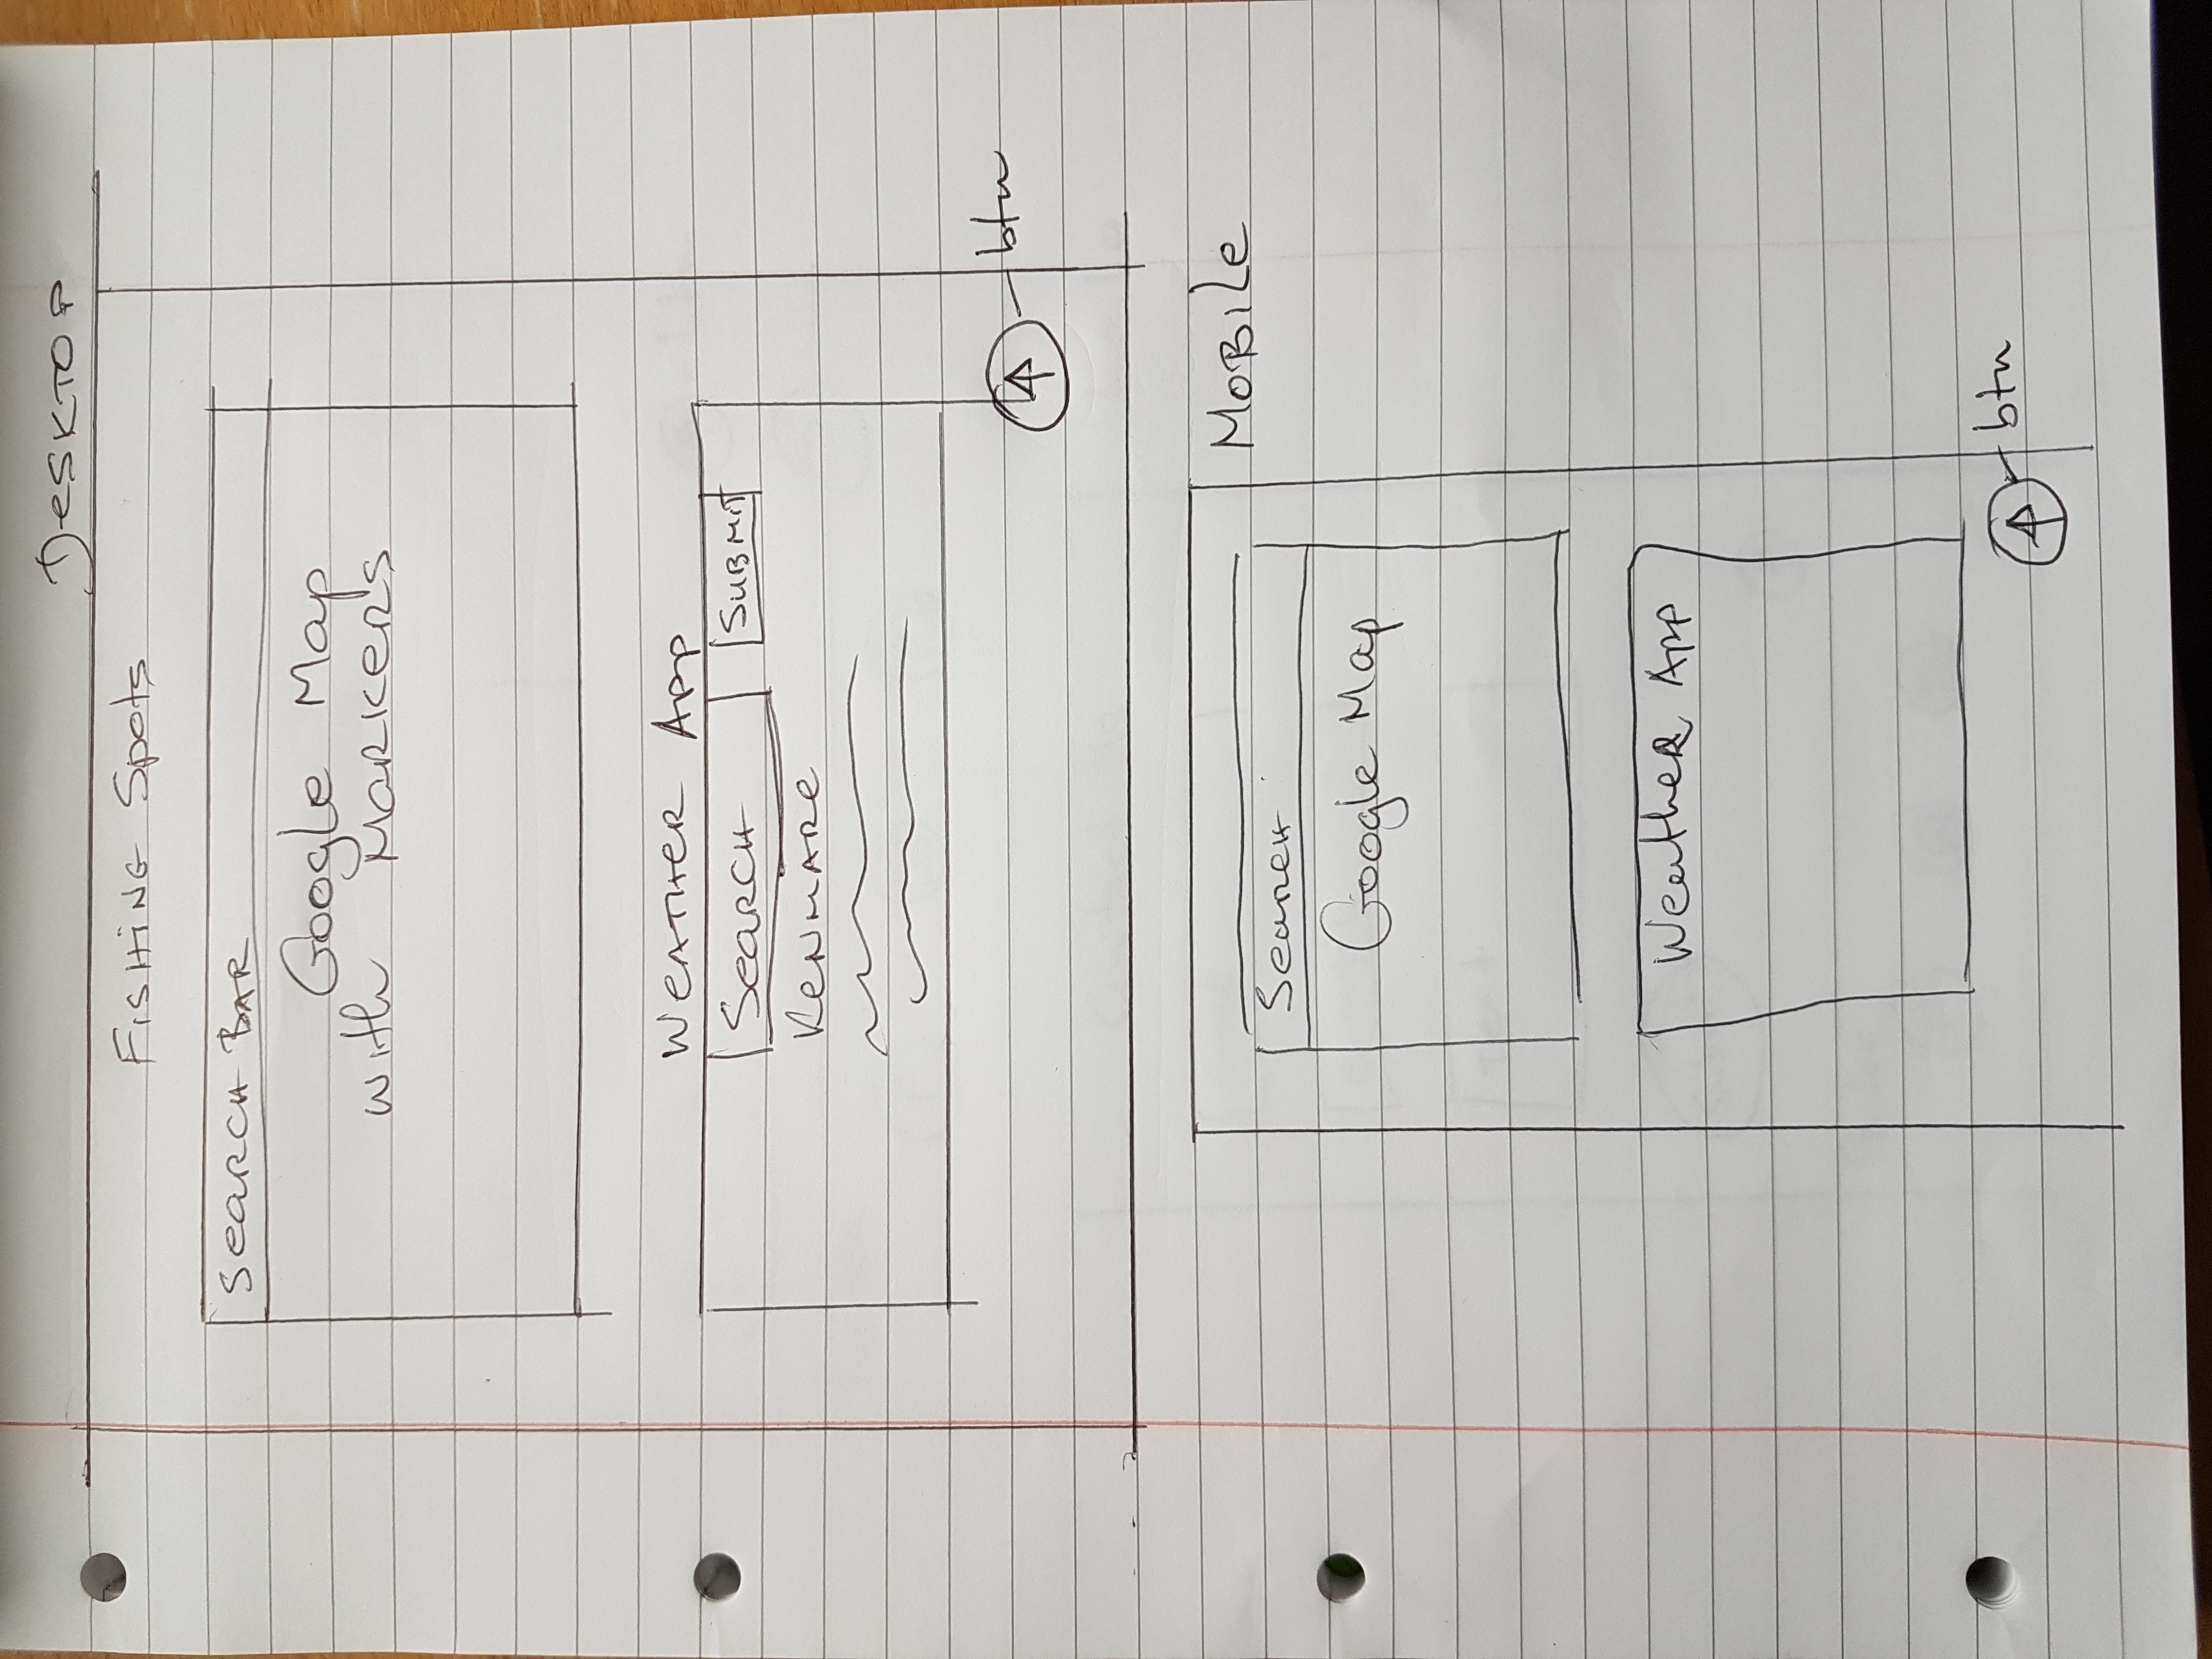 DESKTOP
FISHING Spots
SEARCH BAR
Google Map
with MARKERS
WEATHER APP
SEARCH SUBMIT
KENMARE
btn
MOBILE
SEARCH
Google Map
Weather App
btn